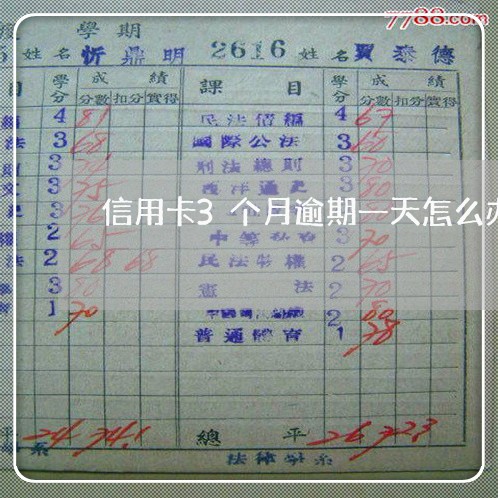 7788.com
學期
姓名 忻鼎明 2616 姓名 賈泰德
目 學分 成績 課目 學分 成績
分數 扣分 實得 分數 扣分 實得
4 81 民法債編 4 67
法 3 68 國際公法 3 60
3 刑法總則 3 70
3 75 西洋通史 3 80
信用卡3 个月逾期一天怎么办
2 65 3 70
法 2 68 68 民法物權 2 65
3 80 憲法 2 70
1 70 2 80
普通體育 1 78
平 24 74.1 總平 26 72.3
系 法律學系